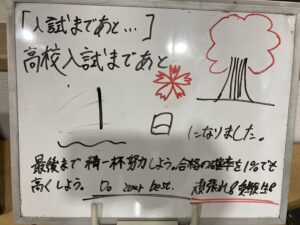 「入試まであと…」
高校入試まであと
1日になりました。
最後まで精一杯努力しよう。合格の確率を1%でも
高くしよう。Do your best. 頑張れ!受験生!